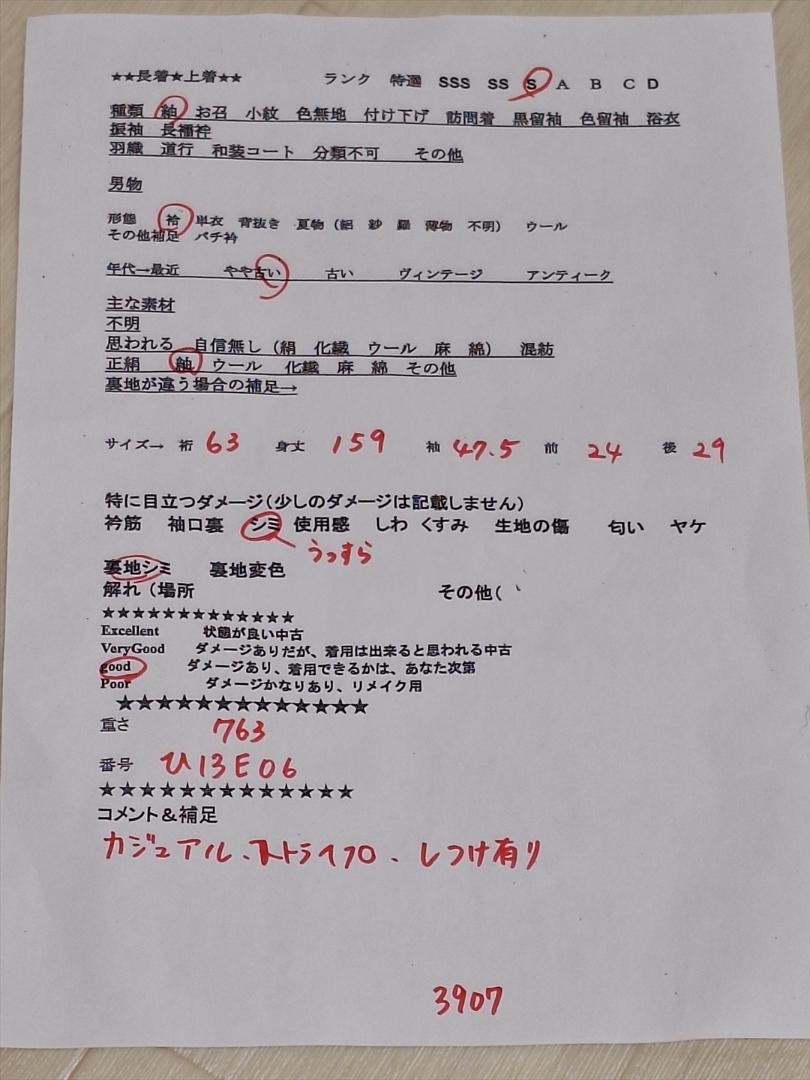 ★★長着★上着★★ ランク 特選 SSS SS S A B C D
種類 紬 お召 小紋 色無地 付け下げ 訪問着 黒留袖 色留袖 浴衣
振袖 長襦袢
羽織 道行 和装コート 分類不可 その他
男物
形態 袷 単衣 背抜き 夏物（絽 紗 羅 薄物 不明） ウール
その他補足 バチ衿
年代→最近 やや古い 古い ヴィンテージ アンティーク
主な素材
不明
思われる 自信無し（絹 化繊 ウール 麻 綿） 混紡
正絹 紬 ウール 化繊 麻 綿 その他
裏地が違う場合の補足→
サイズ→ 裄 63 身丈 159 袖 47.5 前 24 後 29
特に目立つダメージ（少しのダメージは記載しません）
衿筋 袖口裏 シミ 使用感 しわ くすみ 生地の傷 匂い ヤケ
うっすら
裏地シミ 裏地変色
解れ（場所 その他（
★★★★★★★★★★★★★
Excellent 状態が良い中古
VeryGood ダメージありだが、着用は出来ると思われる中古
good ダメージあり、着用できるかは、あなた次第
Poor ダメージかなりあり、リメイク用
★★★★★★★★★★★★★
重さ 763
番号 ひ13E06
★★★★★★★★★★★★★
コメント＆補足
カジュアル、ストライプ、しつけ有り
3907